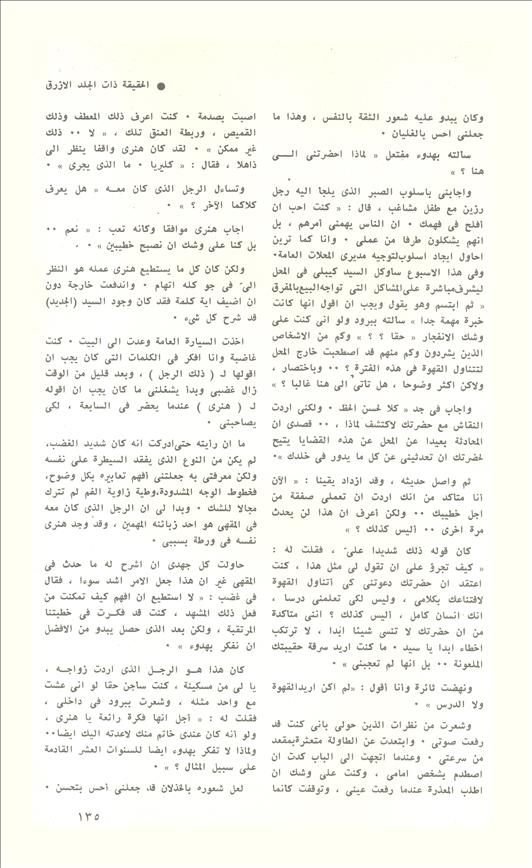 ● الحقيقة ذات الجلد الازرق
وكان يبدو عليه شعور الثقة بالنفس ، وهذا ما
جعلني احس بالغليان ٠
سالته بهدوء مفتعل « لماذا احضرتني الـــى
هنا ؟ »
واجابني باسلوب الصبر الذى يلجأ اليه رجل
رزين مع طفل مشاغب ، قال : « كنت احب ان
أفلح في فهمك ٠ ان الناس يهمني أمرهم ، بل
انهم يشكلون طرفا من عملي ٠ وانا كما ترين
احاول ايجاد اسلوب لتوجيه مديرى المحلات العامة٠
وفى هذا الاسبوع ساوكل السيد كيبلي فى المحل
ليشرف مباشرة على المشاكل التى تواجه البيع بالمفرق
« ثم ابتسم وهو يقول ويجب ان اقول انها كانت
خبرة مهمة جدا » سالته ببرود ولو انى كنت على
وشك الانفجار « حقا ؟ ؟ » وكم من الاشخاص
الذين يشردون وكم منهم قد اصطحبت خارج المحل
لتتناول القهوة في هذه الفترة ؟ ٠٠ وباختصار ،
ولاكن اكثر وضوحا ، هل تأتى الى هنا غالبا ؟ »
واجاب فى جد « كلا لحسن الحظ ٠ ولكنى اردت
النقاش مع حضرتك لاكتشف لماذا ، ٠٠ قصدى ان
المحادثة بعيدا عن المحل عن هذه القضايا يتيح
لحضرتك ان تحدثيني عن كل ما يدور فى خلدك »٠
ثم واصل حديثه ، وقد ازداد يقينا : « الآن
أنا متأكد من انك اردت ان تعملى صفقة من
اجل خطيبك ٠٠ ولكن أعرف ان هذا لن يحدث
مرة اخرى ٠٠ أليس كذلك ؟ »
كان قوله ذلك شديدا علىّ ، فقلت له :
« كيف تجرؤ على ان تقول لى مثل هذا ، كنت
اعتقد ان حضرتك دعوتنى كى أتناول القهوة
لاقتناعك بكلامي ، وليس لكى تعلمنى درسا ،
انك انسان كامل ، أليس كذلك ؟ اننى متأكدة
من ان حضرتك لا تنسى شيئا ابدا ، لا ترتكب
اخطاء ابدا يا سيد ٠ ما كنت اريد سرقة حقيبتك
الملعونة ٠٠ بل انها لم تعجبنى » ٠
ونهضت ثائرة وأنا أقول : «لم اكن اريد القهوة
ولا الدرس » ٠
وشعرت من نظرات الذين حولى بانى كنت قد
رفعت صوتى ٠ وابتعدت عن الطاولة متعثرة بمقعد
من سرعتي ٠ وعندما اتجهت الى الباب كدت ان
اصطدم بشخص امامى ، وكنت على وشك ان
اطلب المعذرة عندما رفعت عينى ، وتوقفت كانما
اصبت بصدمة ٠ كنت اعرف ذلك المعطف وذلك
القميص ، وربطة العنق تلك ، « لا ٠٠ ذلك
غير ممكن » ٠ لقد كان هنرى واقفا ينظر الى
ذاهلا ، فقال : « كليريا ٠ ما الذى يجرى » ٠
وتساءل الرجل الذى كان معـه « هل يعرف
كلاكما الآخر ؟ » ٠
اجاب هنرى موافقا وكأنه تعب : « نعم ٠٠
بل كنا على وشك ان نصبح خطيبين » ٠
ولكن كان كل ما يستطيع هنرى عمله هو النظر
الىّ فى جو كله اتهام ٠ واندفعت خارجة دون
ان اضيف اية كلمة فقد كان وجود السيد (الجديد)
قد شرح كل شىء ٠
اخذت السيارة العامة وعدت الى البيت ٠ كنت
غاضبة وانا افكر فى الكلمات التى كان يجب ان
اقولها لـ ( ذلك الرجل ) ، وبعد قليل من الوقت
زال غضبى وبدأ يشغلنى ما كان يجب ان اقوله
لـ ( هنرى ) عندما يحضر فى السابعة ، لكى
يصاحبنى ٠
ما ان رأيته حتى ادركت انه كان شديد الغضب،
لم يكن من النوع الذى يفقد السيطرة على نفسه
ولكن معرفتى به جعلتنى أفهم تعابيره بكل وضوح،
فخطوط الوجه المشدودة، وطية زاوية الفم لم تترك
مجالا للشك ٠ وبدا لى ان الرجل الذى كان معه
فى المقهى هو احد زبائنه المهمين ، وقد وجد هنرى
نفسه فى ورطة بسببى ٠
حاولت كل جهدى ان اشرح له ما حدث فى
المقهى غير ان هذا جعل الامر اشد سوءا ، فقال
فى غضب : « لا استطيع ان افهم كيف تمكنت من
فعل ذلك المشهد ، كنت قد فكـرت فى خطبتنا
المرتقبة ، ولكن بعد الذى حصل يبدو من الافضل
ان نفكر بهدوء » ٠
كان هذا هـو الرجـل الذى اردت زواجـه ،
يا لى من مسكينة ، كنت ساجن حقا لو انى عشت
مع واحد مثله ، وشعرت ببرود فى داخلى ،
فقلت له : « أجل انها فكرة رائعة يا هنرى ،
ولو انه كان عندى خاتم منك لاعدته اليك ايضا٠٠
ولماذا لا تفكر بهدوء ايضا للسنوات العشر القادمة
على سبيل المثال ؟ » ٠
لعل شعوره بالخذلان قد جعلنى أحس بتحسن ٠
١٣٥